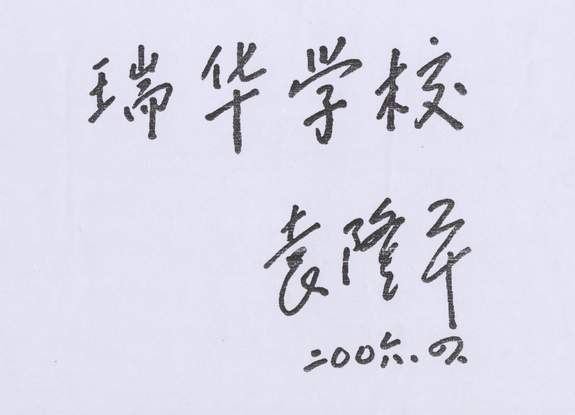 瑞华学校
袁隆平
二00六.四.